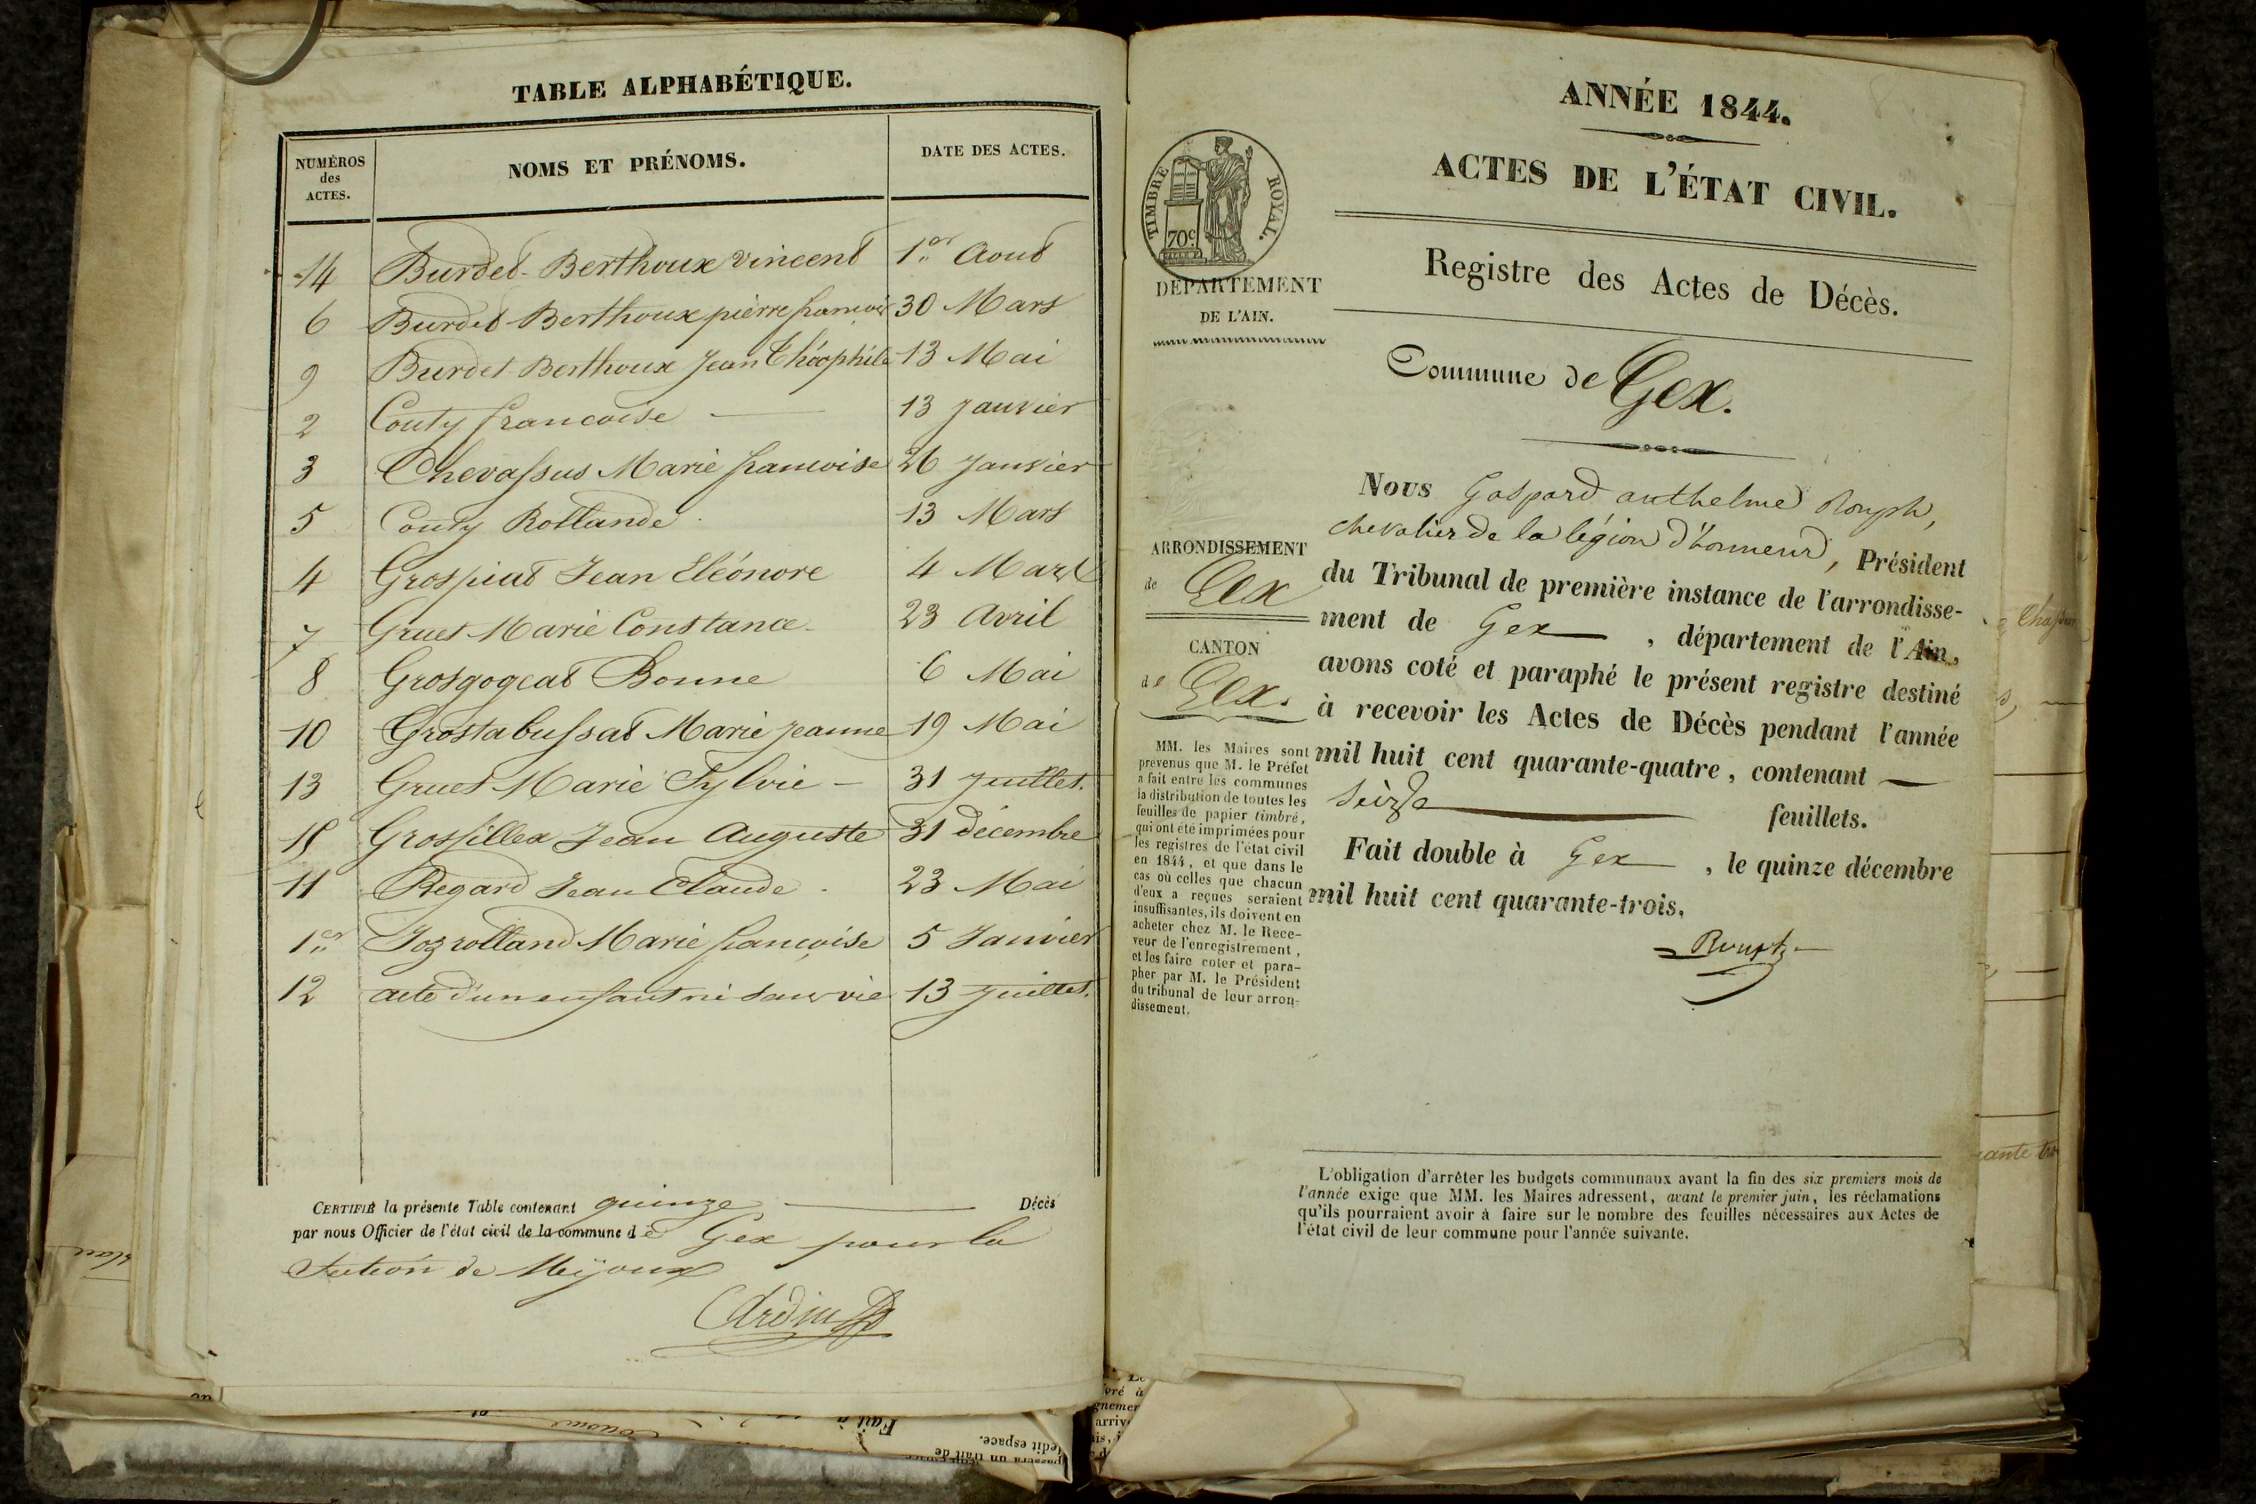 TABLE ALPHABÉTIQUE.
NUMÉROS des ACTES. NOMS ET PRÉNOMS. DATE DES ACTES.
14 Burdet-Berthoux Vincent 1er Aout
6 Burdet Berthoux pierre françois 30 Mars
9 Burdet Berthoux Jean Théophile 13 Mai
2 Couty francoise 13 Janvier
3 Chevassus Marie francoise 26 Janvier
5 Couty Rollande 13 Mars
4 Grospiat Jean Eléonore 4 Mars
7 Gruet Marie Constance 23 Avril
8 Grosgogeat Bonne 6 Mai
10 Grostabussat Marie Jeanne 19 Mai
13 Gruet Marie Sylvie 31 Juillet.
15 Grosfillex Jean Auguste 31 Décembre
11 Regard Jean Claude 23 Mai
1er Jozrolland Marie françoise 5 Janvier
12 acte d'un enfant né sans vie 13 Juillet.
CERTIFIÉ la présente Table contenant quinze Décès
par nous Officier de l'état civil de la commune de Gex pour la
Section de Mijoux
ANNÉE 1844.
ACTES DE L'ÉTAT CIVIL.
TIMBRE ROYAL.
70c
DÉPARTEMENT
DE L'AIN.
Registre des Actes de Décès.
Commune de Gex.
ARRONDISSEMENT
de Gex
CANTON
de Gex.
MM. les Maires sont
prévenus que M. le Préfet
a fait entre les communes
la distribution de toutes les
feuilles de papier timbré,
qui ont été imprimées pour
les registres de l'état civil
en 1844, et que dans le
cas où celles que chacun
d'eux a reçues seraient
insuffisantes, ils doivent en
acheter chez M. le Rece-
veur de l'enregistrement,
et les faire coter et para-
pher par M. le Président
du tribunal de leur arron-
dissement.
Nous Gaspard anthelme Rouph,
chevalier de la légion d'honneur, Président
du Tribunal de première instance de l'arrondisse-
ment de Gex, département de l'Ain,
avons coté et paraphé le présent registre destiné
à recevoir les Actes de Décès pendant l'année
mil huit cent quarante-quatre, contenant
seize feuillets.
Fait double à Gex, le quinze décembre
mil huit cent quarante-trois.
Rouph
L'obligation d'arrêter les budgets communaux avant la fin des six premiers mois de
l'année exige que MM. les Maires adressent, avant le premier juin, les réclamations
qu'ils pourraient avoir à faire sur le nombre des feuilles nécessaires aux Actes de
l'état civil de leur commune pour l'année suivante.
Fait à
ledit espace.